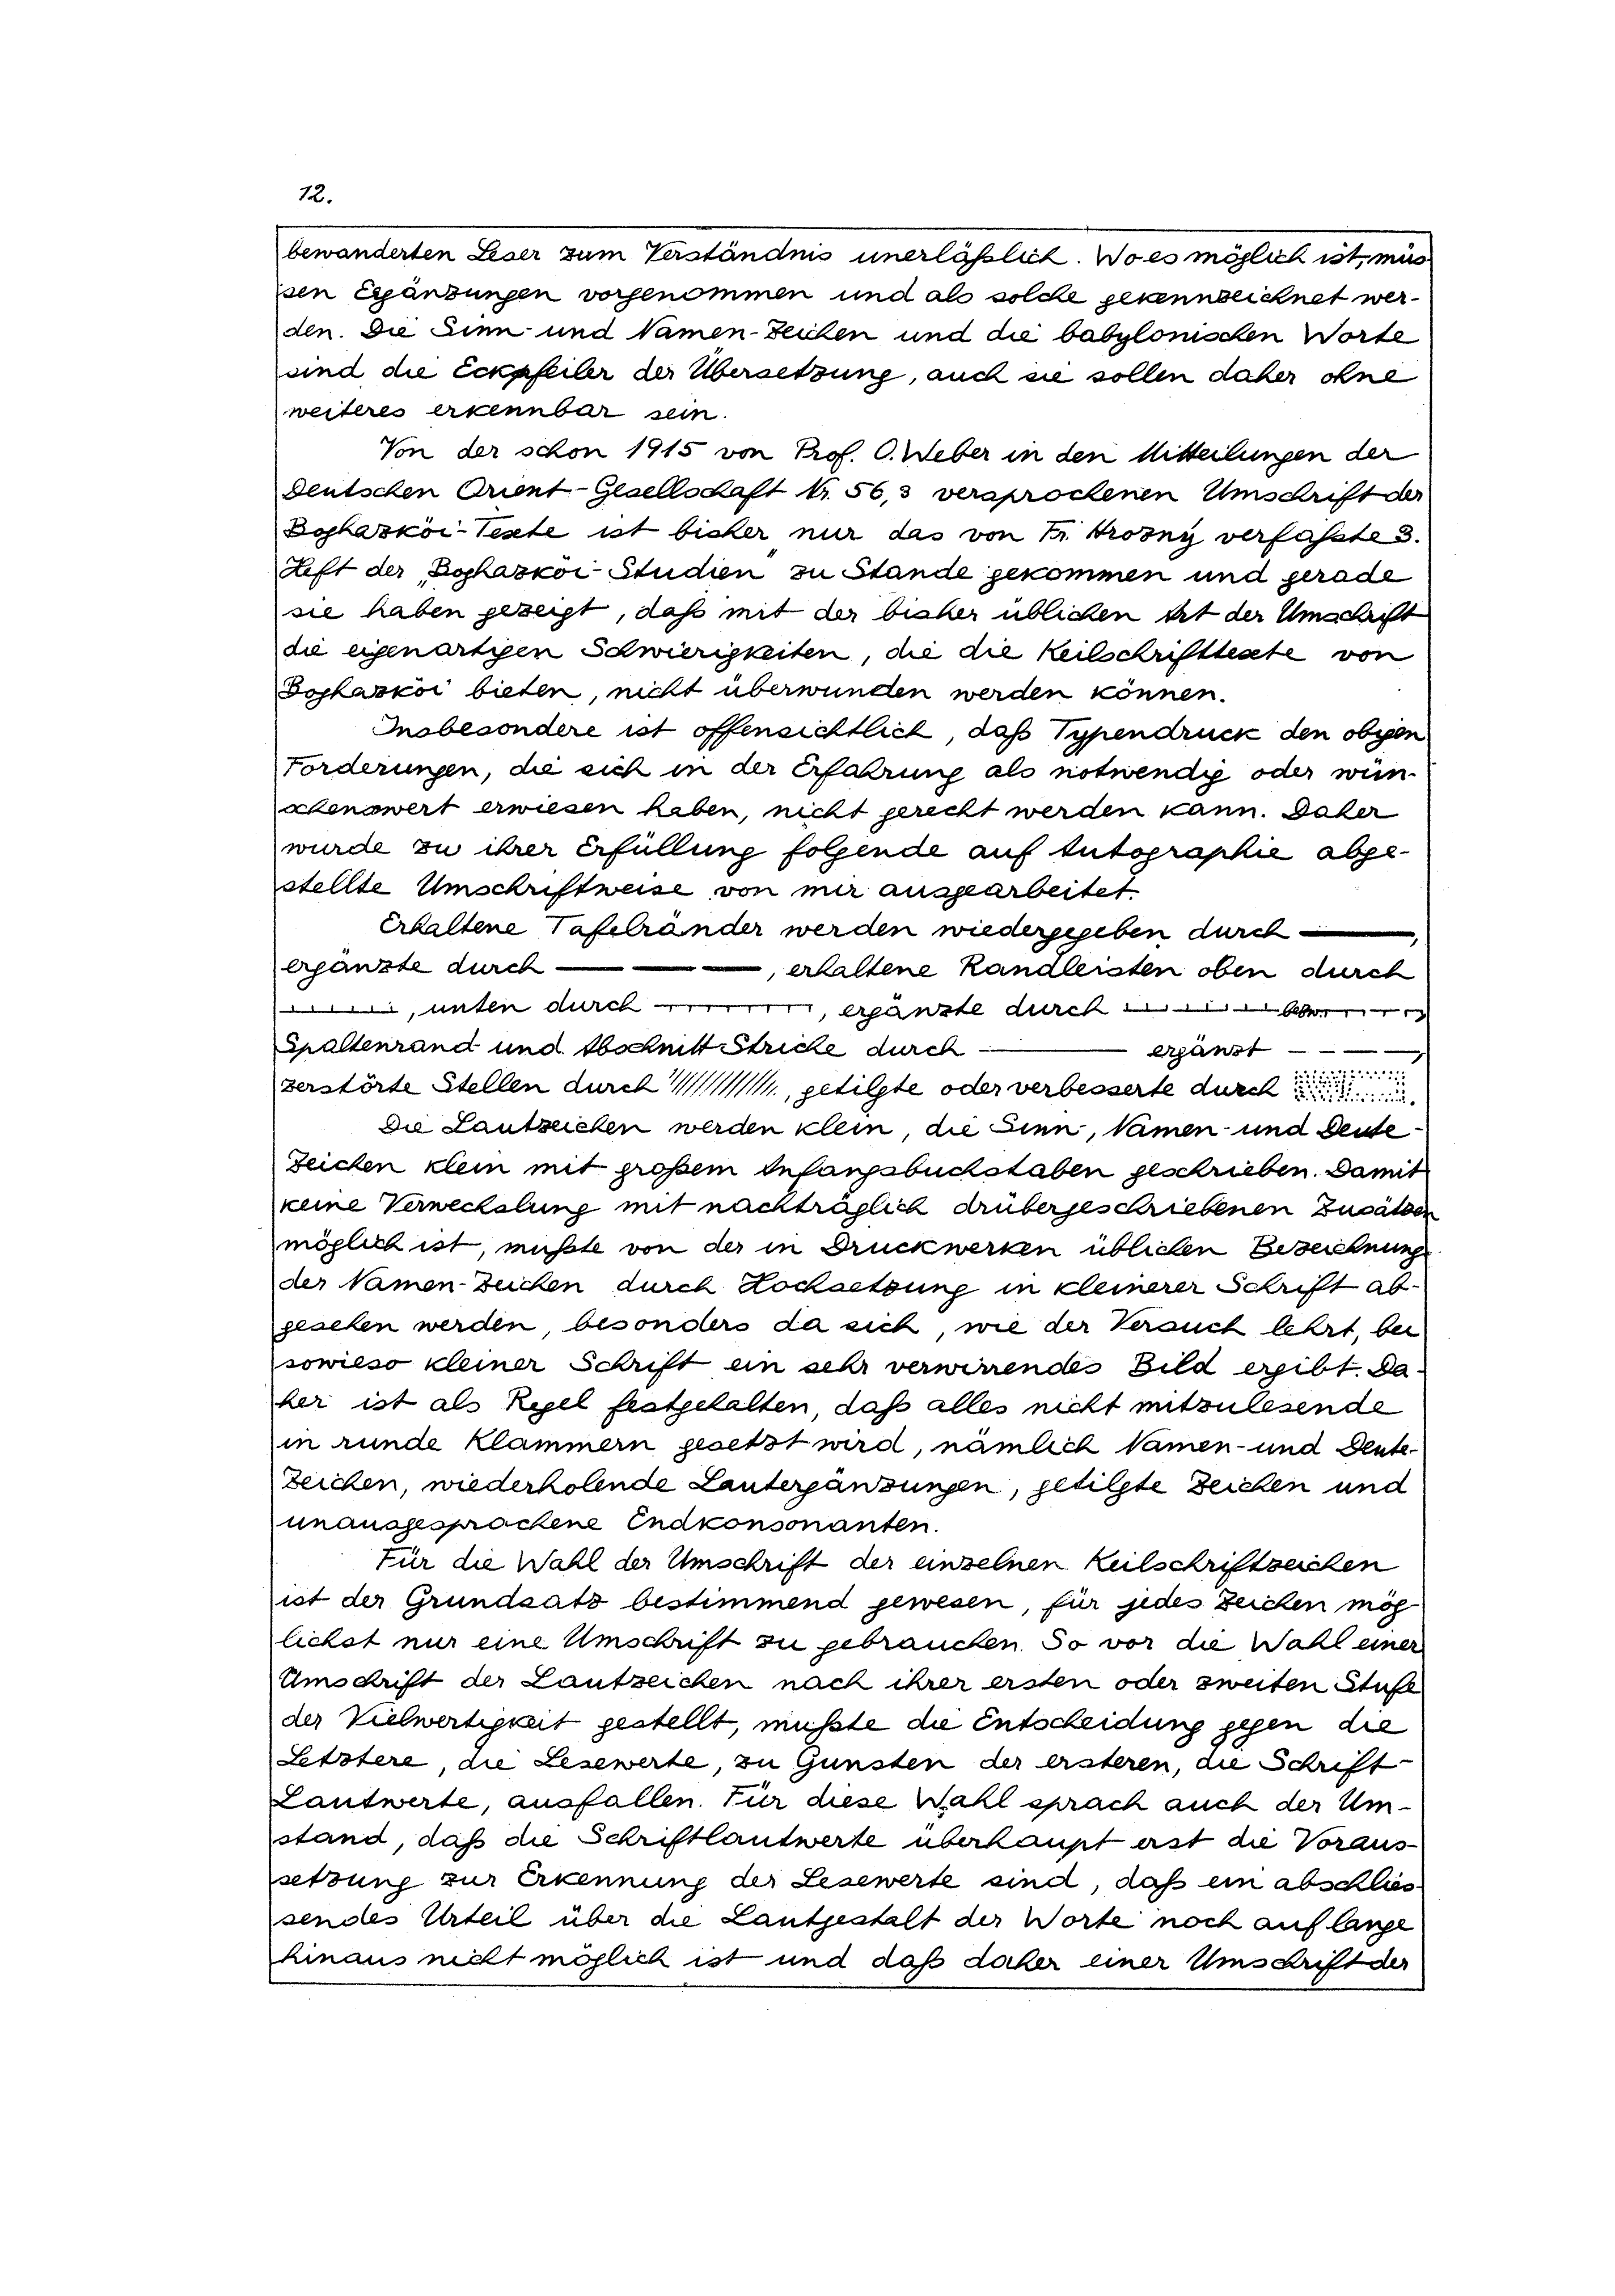 12.
bewanderten Leser zum Verständnis unerläßlich. Wo es möglich ist, müs
sen Ergänzungen vorgenommen und als solche gekennzeichnet wer-
den. Die Sinn- und Namen-Zeichen und die babylonischen Worte
sind die Eckpfeiler der Übersetzung, auch sie sollen daher ohne
weiteres erkennbar sein.
Von der schon 1915 von Prof. O. Weber in den Mitteilungen der
Deutschen Orient-Gesellschaft Nr. 56,3 versprochenen Umschrift der
Boghazköi-Texte ist bisher nur das von Fr. Hrozný verfaßte 3.
Heft der „Boghazköi-Studien" zu Stande gekommen und gerade
sie haben gezeigt, daß mit der bisher üblichen Art der Umschrift
die eigenartigen Schwierigkeiten, die die Keilschrifttexte von
Boghazköi bieten, nicht überwunden werden können.
Insbesondere ist offensichtlich, daß Typendruck den obigen
Forderungen, die sich in der Erfahrung als notwendig oder wün-
schenswert erwiesen haben, nicht gerecht werden kann. Daher
wurde zu ihrer Erfüllung folgende auf Autographie abge-
stellte Umschriftweise von mir ausgearbeitet.
Erhaltene Tafelränder werden wiedergegeben durch ,
ergänzte durch , erhaltene Randleisten oben durch
, unten durch , ergänzte durch
Spaltenrand und Abschnitt-Striche durch ergänzt ,
zerstörte Stellen durch , getilgte oder verbesserte durch .
Die Lautzeichen werden klein, die Sinn-, Namen- und Deute-
Zeichen klein mit großem Anfangsbuchstaben geschrieben. Damit
keine Verwechslung mit nachträglich drübergeschriebenen Zusätzen
möglich ist, mußte von der in Druckwerken üblichen Bezeichnung
der Namen-Zeichen durch Hochsetzung in kleinerer Schrift ab-
gesehen werden, besonders da sich, wie der Versuch lehrt, bei
sowieso kleiner Schrift ein sehr verwirrendes Bild ergibt. Da-
her ist als Regel festgehalten, daß alles nicht mitzulesende
in runde Klammern gesetzt wird, nämlich Namen- und Deute-
Zeichen, wiederholende Lautergänzungen, getilgte Zeichen und
unausgesprochene Endkonsonanten.
Für die Wahl der Umschrift der einzelnen Keilschriftzeichen
ist der Grundsatz bestimmend gewesen, für jedes Zeichen mög-
lichst nur eine Umschrift zu gebrauchen. So vor die Wahl einer
Umschrift der Lautzeichen nach ihrer ersten oder zweiten Stufe
der Vielwertigkeit gestellt, mußte die Entscheidung gegen die
Letztere, die Lesewerte, zu Gunsten der ersteren, die Schrift-
Lautwerte, ausfallen. Für diese Wahl sprach auch der Um-
stand, daß die Schriftlautwerte überhaupt erst die Voraus-
setzung zur Erkennung der Lesewerte sind, daß ein abschlies-
sendes Urteil über die Lautgestalt der Worte noch auf lange
hinaus nicht möglich ist und daß daher einer Umschrift der